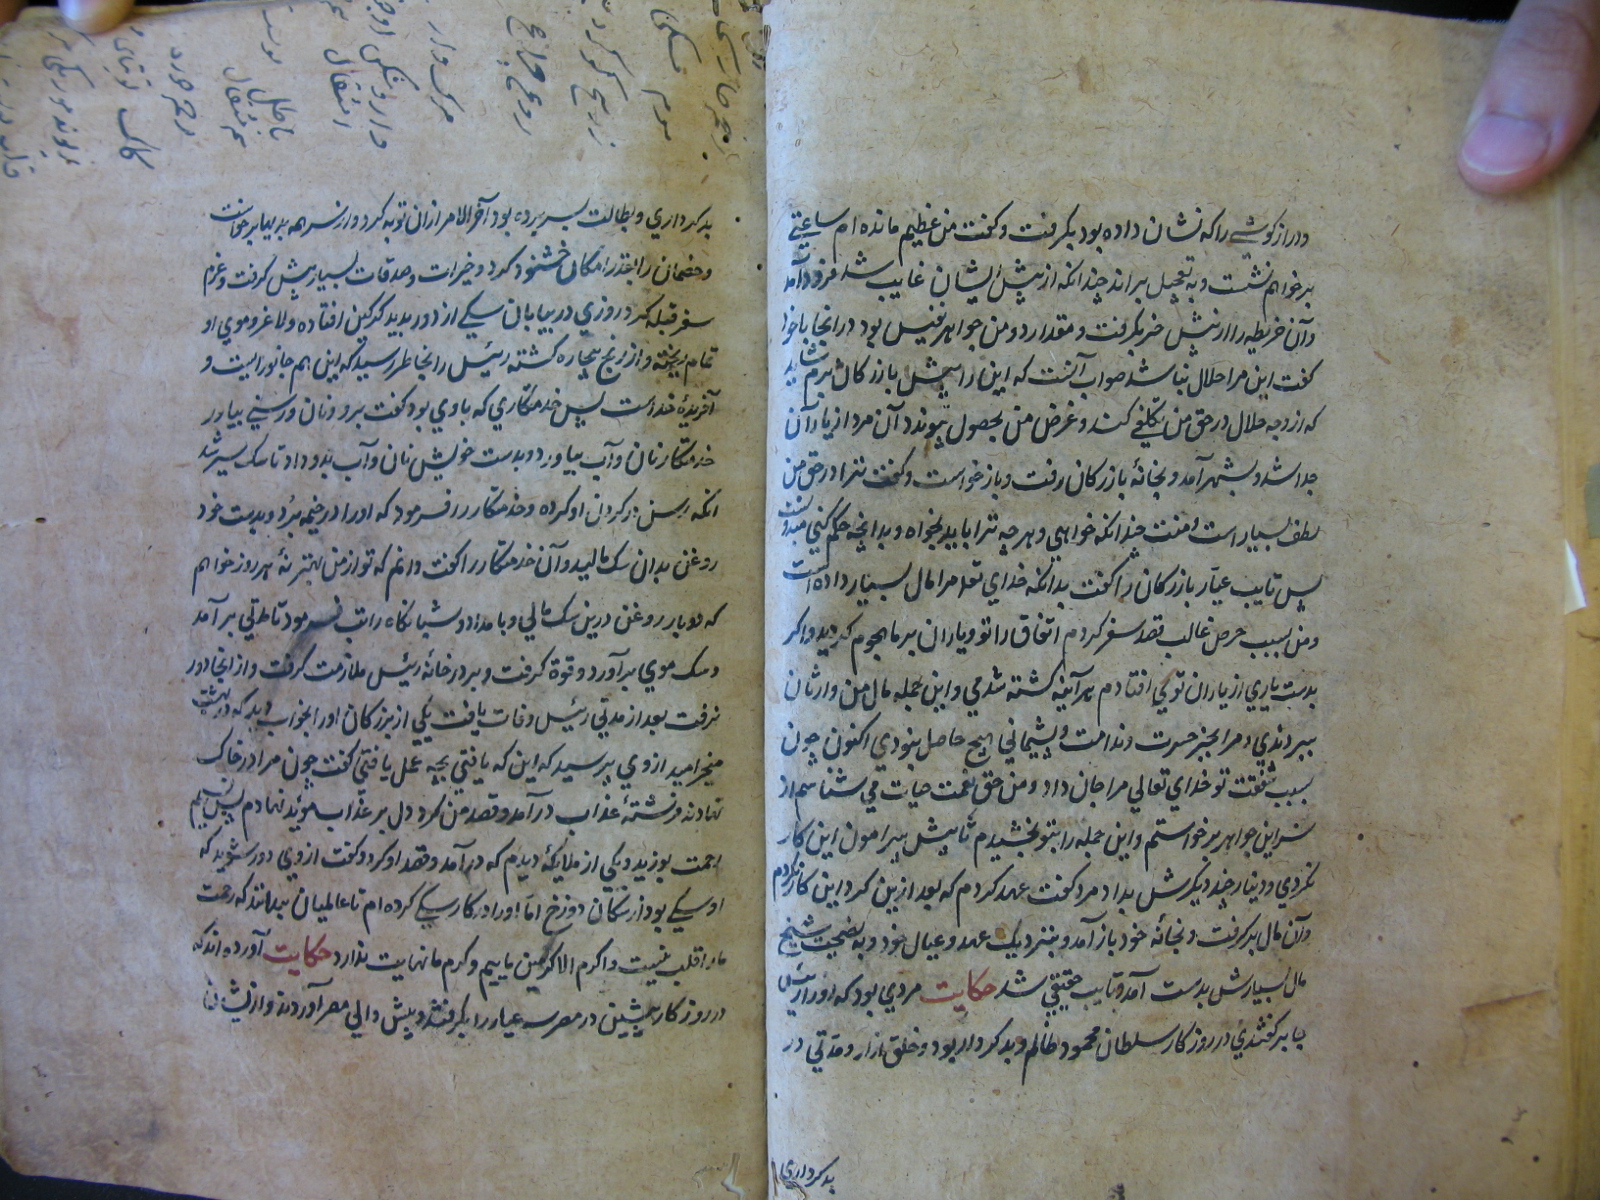 ودراز کوشی را که نشان داده بود بکرفت و کفت من عظیم مانده ام ساعتی
برخواهم نشست و به تعجیل براند چندانکه از پیش ایشان غایب شد فرود آمد
وآن خریطه را از پیش خر بکرفت و مقدار دو من جواهر نفیس بود در انجا با خود
کفت این مرا حلال نباشد صواب آنست که این را پیش بازرکان برم شاید
که از وجه حلال در حق من تکلفی کند و غرض من بحصول پیوندد آن مرد از یاران
جدا شد و بشهر آمد و بخانهٔ بازرکان رفت و باز خواست و کفت ترا در حق من
لطف بسیار است منت چندانکه خواهی و هر چه ترا باید بخواه و بدانچه حکم کنی
پس تایب عیار بازرکان را کفت بدانکه خدای تعلی مرا مال بسیار داده است
و من بسبب حرص غالب قصد سفر کردم اتفاق را تو و یاران بر ما هجوم کردید و اکر
بدست یاری از یاران تو می افتادم هر آینه کشته شدمی و این جمله مال من وارثان
ببردندی و مرا بجز حسرت و ندامت و پشیمانی هیچ حاصل نبودی اکنون چون
بسبب شفقت تو خدای تعالی مرا جان داد و من حق نعمت حیات می شناسم از
سر این جواهر برخواستم و این جمله را بتو بخشیدم تا پیش پیرامون این کار
نکردی و دینار چند دیکرش بداد مرد کفت عهد کردم که بعد ازین کرد این کار نکردم
وآن مال برکرفت و بخانهٔ خود باز آمد و بنزدیک عهد و عیال خود و به نصیحت شیخ
مال بسیارش بدست آمد و تایب حقیقی شد حکایت مردی بود که او را رئیس
چابر کفتندی در روزکار سلطان محمود ظالم و بدکردار بود و خلق آزار و مدتی در
بدکرداری
بدکرداری و بطالت بسر برده بود آخر الامر ازان توبه کرد و از سر همه بدیها برخواست
و خصمان را بقدر امکان خشنود کرد و خیرات و صدقات بسیار پیش کرفت و عزم
سفر قبله کرد روزی در بیابان سکی از دور بدید کرکین افتاده و لاغر و موی او
تمام ریخته و از رنج بیچاره کشته رئیس را بخاطر رسید که این هم جانوریست و
آفریدهٔ خداست پس خدمتکاری که با وی بود کفت برو و نان و رسنی بیاور
خدمتکار نان و آب بیاورد و بدست خویش نان و آب بدو داد تا سک سیر شد
آنکه رسن در کردن او کرده و خدمتکار را فرمود که او را در خیمه برد و بدست خود
روغن بدان سک مالید و آن خدمتکار را کفت دانم که تو از من بهتر نهٔ هر روز خواهم
که دو بار روغن درین سک مالی و بامداد و شبانکاه راتب فرمود تا مدتی بر آمد
و سک موی بر آورد و قوة کرفت و بر در خانهٔ رئیس ملازمت کرفت و از انجا دور
نرفت بعد از مدتی رئیس وفات یافت یکی از بزرکان او را بخواب دید که در بهشت
میخرامید از وی پرسید که این که یافتی بچه عمل یافتی کفت چون مرا در خاک
نهادند فرشتهٔ عذاب در آمد و قصد من کرد دل بر عذاب موئبد نهادم پس نسیم
رحمت بوزید و یکی از ملایکه دیدم که در آمد و قصد او کرد و کفت از وی دور شوید که
او سکی بود از سکان دوزخ اما او را در کار سکی کرده ام تا عالمیان بدانند که رحمت
ما را قلب نیست و اکرم الاکرمین ماییم و کرم ما نهایت ندارد حکایت آورده اند که
در روزکار پیشین در مصر سه عیار را بکرفتند و پیش والی مصر آوردند و از ایشان